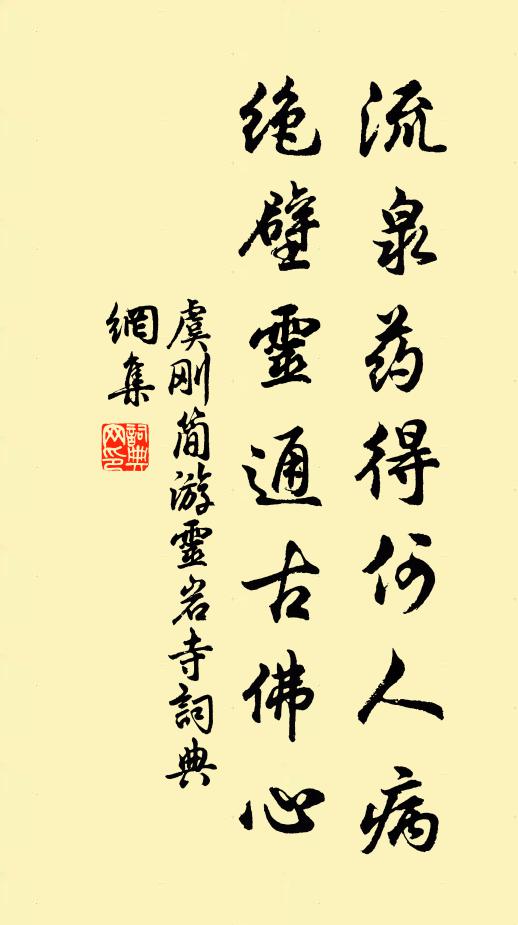 流泉药得何人病
绝壁靈通古佛心
虞刚简游靈岩寺詞典
網集
詞典
网印